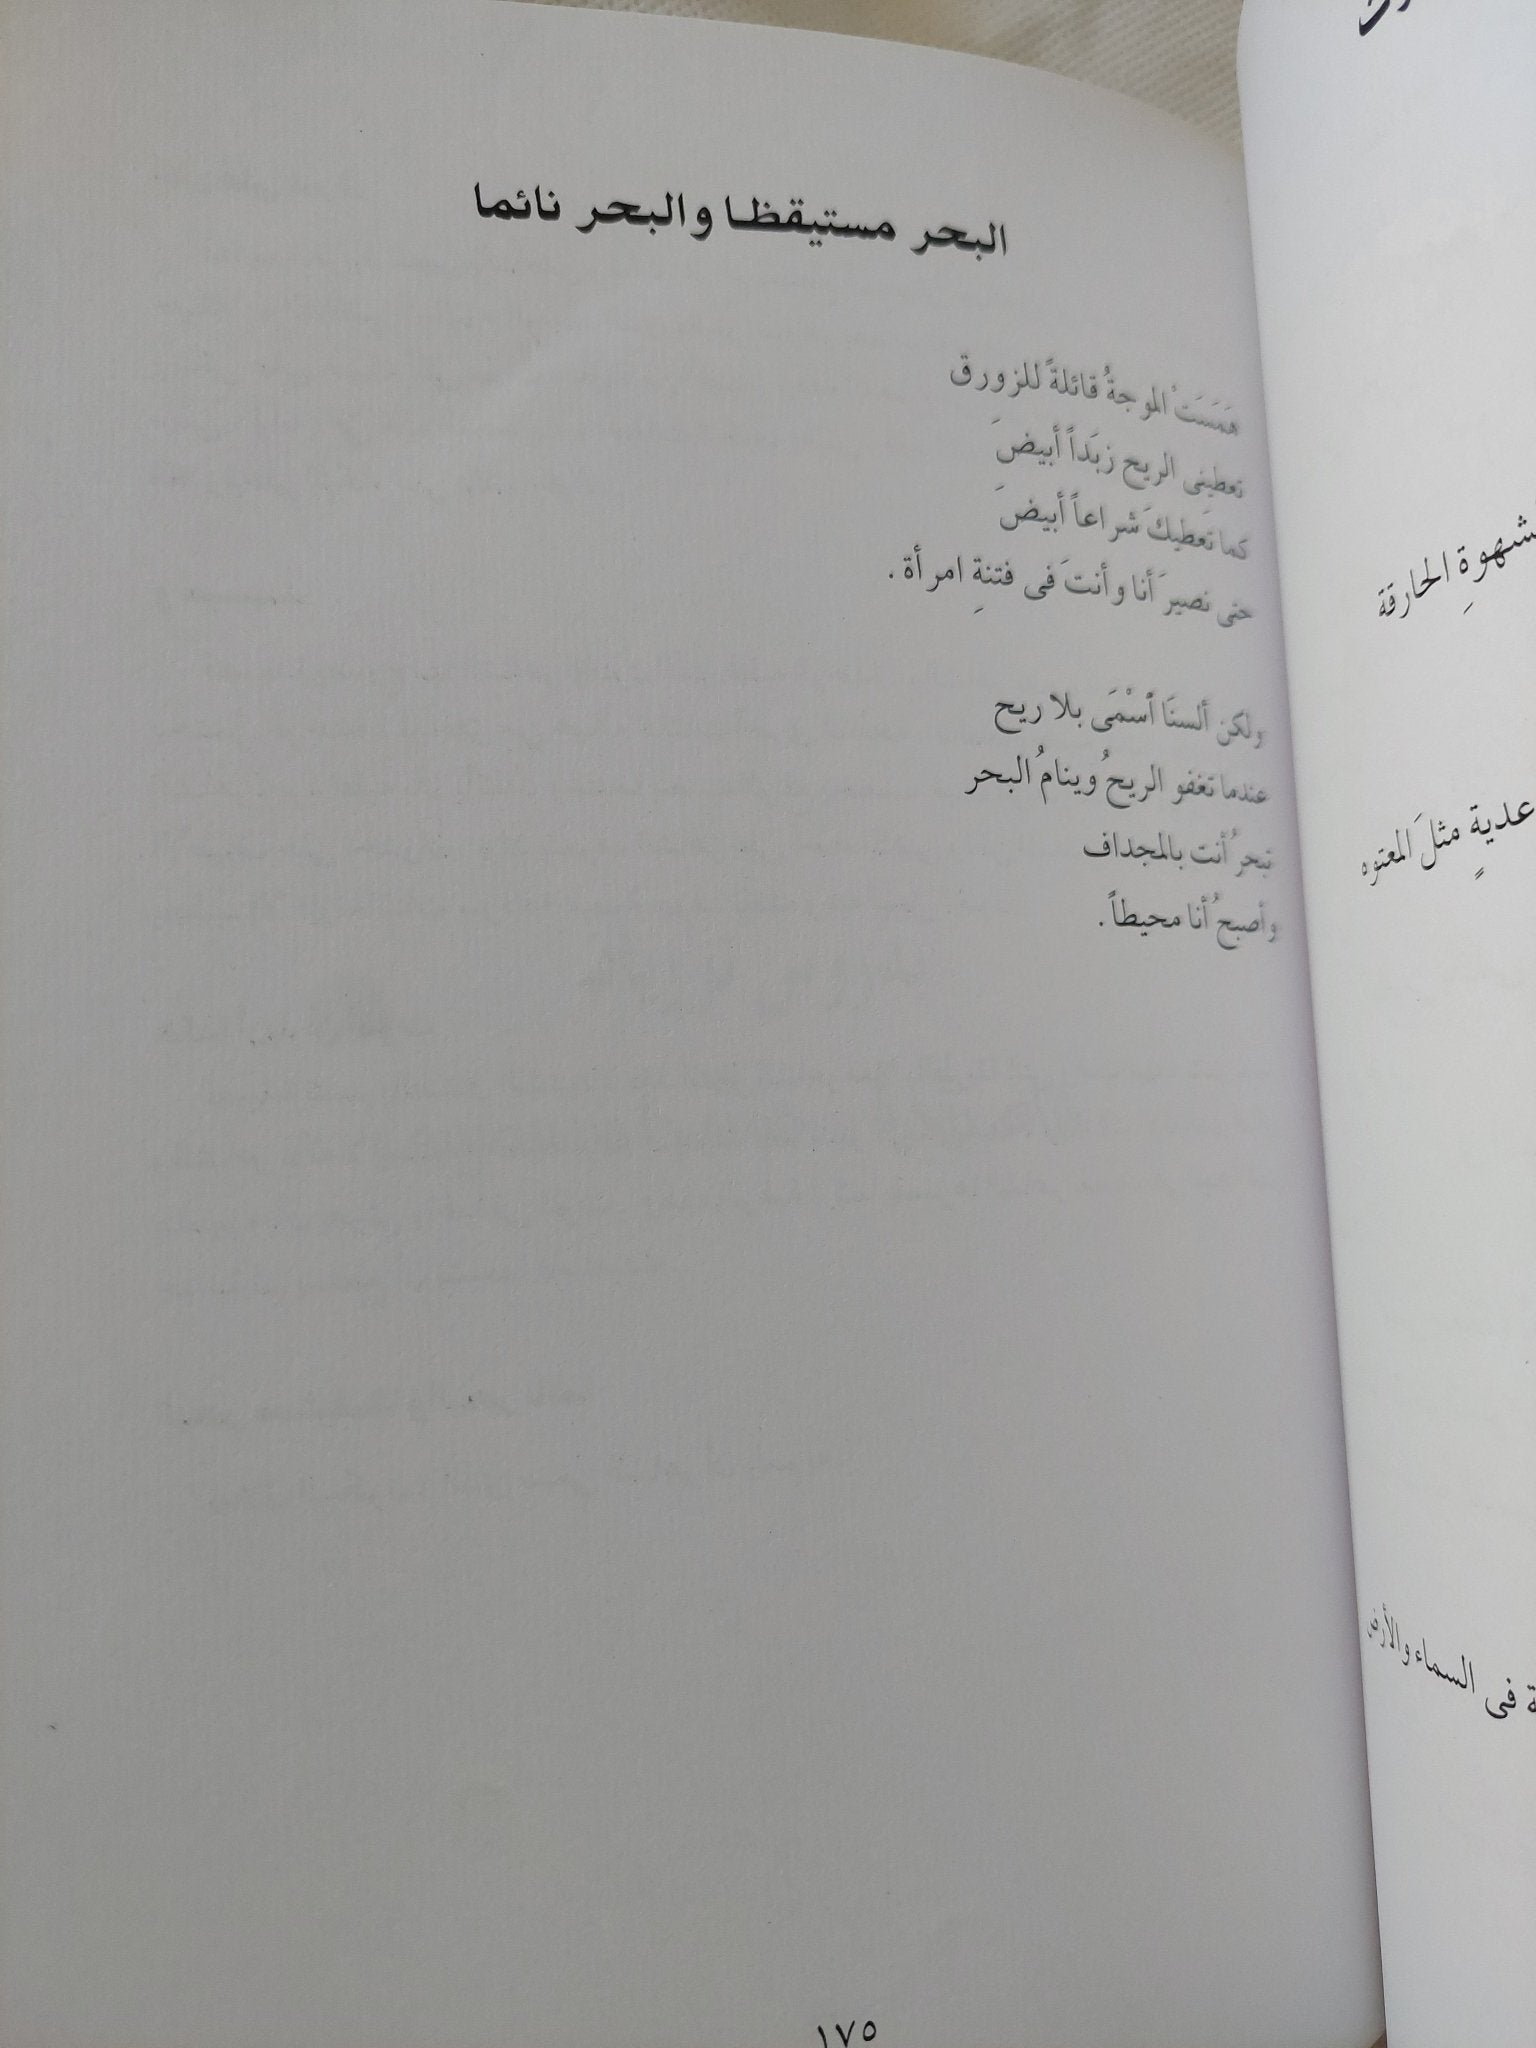 البحر مستيقظا والبحر نائما
هَمَسَتْ الموجةُ قائلةً للزورق
تعطينِى الريح زبَداً أبيضَ
كما تعطيكَ شراعاً أبيضَ
حتى نصيرَ أنا وأنتَ فى فتنةِ امرأة .
ولكن ألسنَا أسْمَى بلا ريح
عندما تغفو الريحُ وينامُ البحر
تبحرُ أنت بالمجداف
وأصبحُ أنا محيطاً .
١٧٥
شهوةِ الحارقة
عديةٍ مثلَ المعتوه
فى السماء والأرض